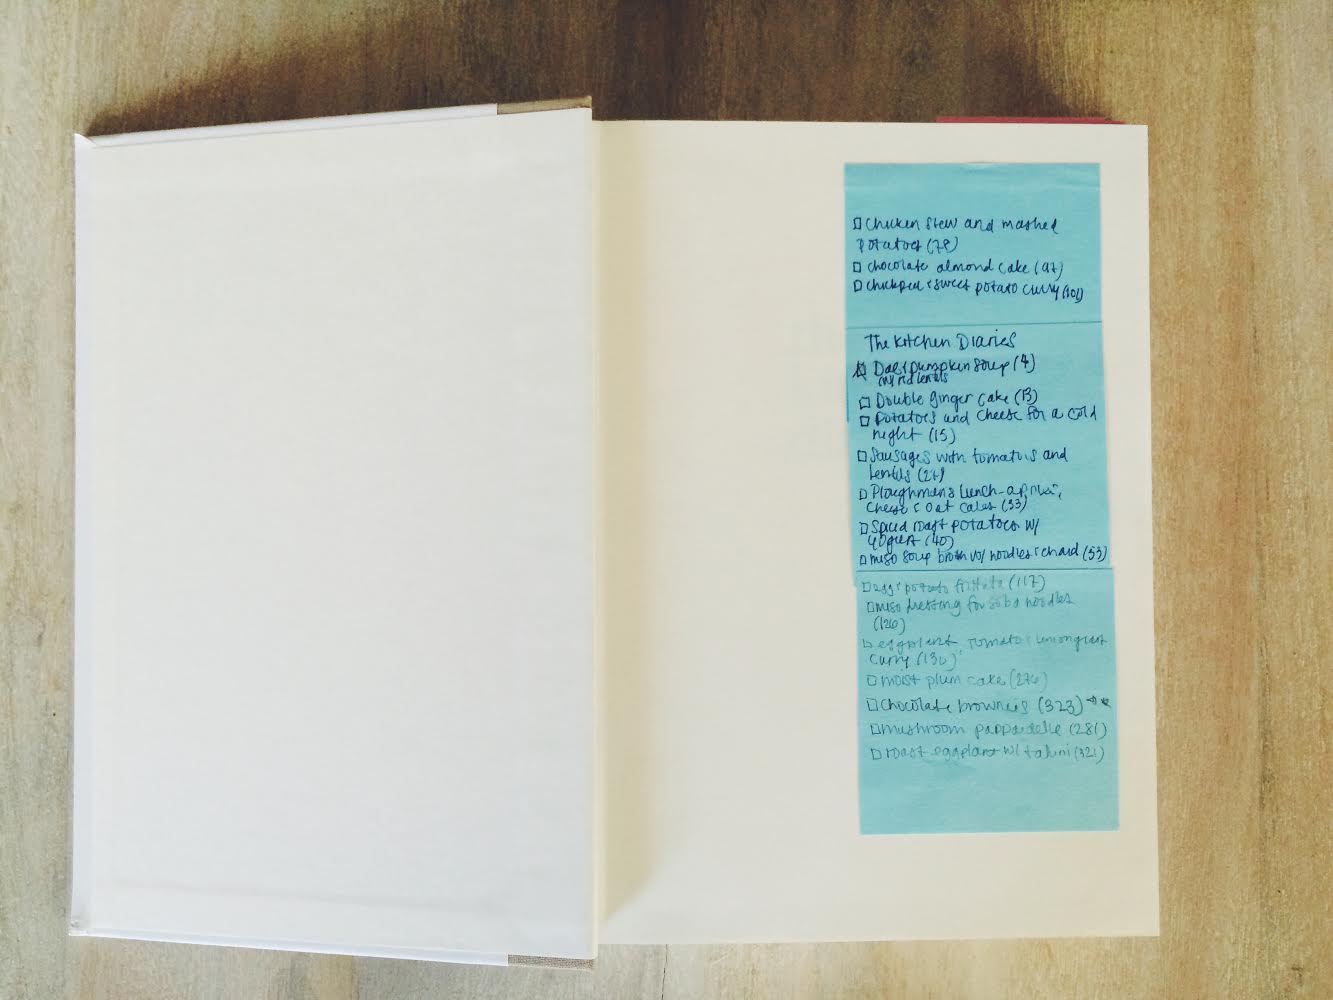 ☐ Chicken stew and mashed
potatoes (78)
☐ chocolate almond cake (97)
☐ chickpea & sweet potato curry (101)
The Kitchen Diaries
☐ Dal & pumpkin soup (4)
w/ red lentils
☐ Double ginger cake (13)
☐ Potatoes and cheese for a cold
night (15)
☐ Sausages with tomatoes and
lentils (27)
☐ Ploughmans lunch-apples,
cheese & oat cakes (33)
☐ Spiced roast potatoes w/
yogurt (40)
☐ miso soup broth w/ noodles & chard (53)
☐ egg & potato frittata (117)
☐ miso dressing for soba noodles
(126)
☐ eggplant tomato & lemongrass
curry (130)
☐ moist plum cake (276)
☐ Chocolate brownies (323)
☐ mushroom pappardelle (281)
☐ roast eggplant w/ tahini (321)